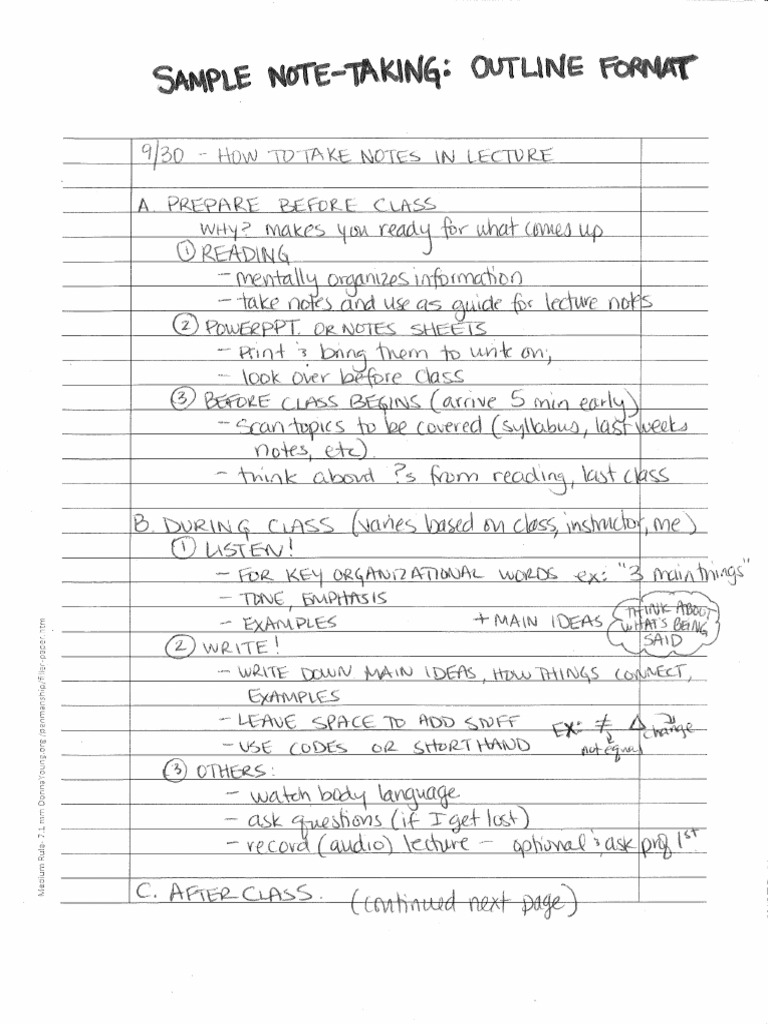 SAMPLE NOTE-TAKING: OUTLINE FORMAT
9/30 - HOW TO TAKE NOTES IN LECTURE
A. PREPARE BEFORE CLASS
WHY? makes you ready for what comes up
① READING
- mentally organizes information
- take notes and use as guide for lecture notes
② POWERPPT. OR NOTES SHEETS
- Print & bring them to write on,
- look over before class
③ BEFORE CLASS BEGINS (arrive 5 min early)
- Scan topics to be covered (syllabus, last weeks
notes, etc).
- think about ?s from reading, last class
B. DURING CLASS (varies based on class, instructor, me)
① LISTEN!
- FOR KEY ORGANIZATIONAL WORDS ex: "3 main things"
- TONE, EMPHASIS
- EXAMPLES + MAIN IDEAS
THINK ABOUT
WHAT'S BEING
SAID
② WRITE!
- WRITE DOWN MAIN IDEAS, HOW THINGS CONNECT,
EXAMPLES
- LEAVE SPACE TO ADD STUFF
- USE CODES OR SHORTHAND
EX: ≠ Δ change
not equal
③ OTHERS:
- watch body language
- ask questions (if I get lost)
- record (audio) lecture - optional & ask prof 1st
C. AFTER CLASS. (continued next page)
Medium Rule- 7.1 mm DonnaYoung.org /penmanship/filler-paper.htm